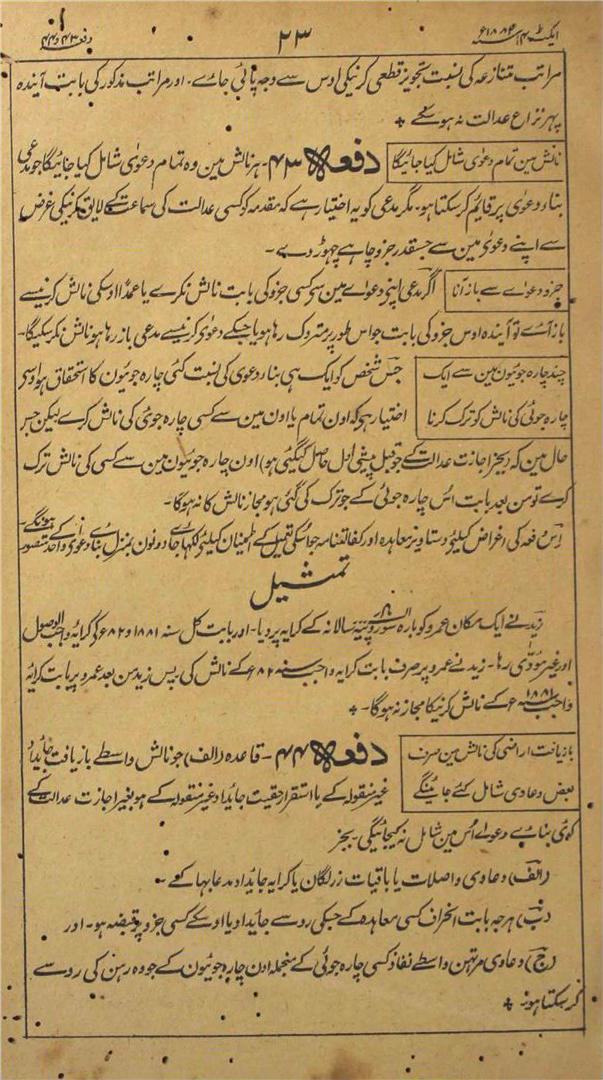 ایکٹ ۱۴ سنہ ۱۸۸۲ء
۲۳
دفعہ ۴۳ و ۴۴
مراتب متنازعہ کی نسبت تجویز قطعی کرنیکی اوس سے وجہ پائی جائے۔ اور مراتب مذکور کی بابت آیندہ
پہر نزاع عدالت نہ ہو سکے ٭
نالش مین تمام دعویٰ شامل کیا جائیگا
دفعہ ۴۳۔ ہر نالش مین وہ تمام دعویٰ شامل کیا جائیگا جو مدعی
بناء دعویٰ پر قایم کر سکتا ہو۔ مگر مدعی کو یہ اختیار ہے کہ مقدمہ کو کسی عدالت کی سماعت کے لایق کرنیکی غرض
سے اپنے دعویٰ مین سے جسقدر جزو چاہے چہوڑ دے۔
جزو دعوے سے باز آنا
اگر مدعی اپنی دعوے مین سی کسی جزو کی بابت نالش نکرے یا عمداً اوسکی نالش کرنیسے
باز آئے تو آیندہ اوس جزو کی بابت جو اس طور پر متروک رہا ہو یا جسکے دعویٰ کرنیسے مدعی باز رہا ہو نالش نکر سکیگا۔
چند چارہ جوئیون مین سے ایک
چارہ جوئی کی نالش کو ترک کرنا
جس شخص کو ایک ہی بناء دعویٰ کی نسبت کئی چارہ جوئیون کا استحقاق ہو اوسی
اختیار ہی کہ اون تمام یا اون مین سے کسی چارہ جوئی کی نالش کرے لیکن جس
حال مین کہ (بجز اجازت عدالت کے جو قبل پیشی اول حاصل کیگئی ہو) اون چارہ جوئیون مین سے کسی کی نالش ترک
کرے تو من بعد بابت اس چارہ جوئی کے جو ترک کی گئی ہو مجاز نالش کا نہ ہوگا۔
اس دفعہ کی اغراض کیلئے دستاویز معاہدہ اور کفالتنامہ جو اسکی تعمیل کے اطمینان کیلئے لکہا جاوے دونون بمنزلہ بناے دعویٰ واحد کے متصور ہونگے۔
تمثیل
زید نے ایک مکان عمرو کو بارہ سو روپیہ سالانہ کے کرایہ پر دیا۔ اور بابت کل سنہ ۱۸۸۱ و ۱۸۸۲ء کی کرایہ واجب الوصول
اور غیر مودی رہا۔ زید نے عمرو پر صرف بابت کرایہ واجب سنہ ۱۸۸۲ء کے نالش کی پس زید من بعد عمرو پر بابت کرایہ
واجب سنہ ۱۸۸۱ء کے نالش کرنیکا مجاز نہ ہوگا۔ ٭
بازیافت اراضی کی نالش مین صرف
بعض دعاوی شامل کئے جاینگے
دفعہ ۴۴۔ قاعدہ (الف) جو نالش واسطے بازیافت جایداد
غیر منقولہ کے یا استقرار حقیت جایداد غیر منقولہ کے ہو بغیر اجازت عدالت کے
کوئی بناے دعوے اس مین شامل نہ کیجائیگی۔ بجز
(الف) دعاوی واصلات یا باقیات زر لگان یا کرایہ جایداد مدعابہا کے۔
(ب) ہرجہ بابت انحراف کسی معاہدہ کے جسکی رو سے جایداد یا اوسکے کسی جزو پر قبضہ ہو۔ اور
(ج) دعاوی مرتہن واسطے نفاذ کسی چارہ جوئی کے منجملہ اون چارہ جوئیون کے جو وہ رہن کی رو سے
کر سکتا ہو۔ ٭